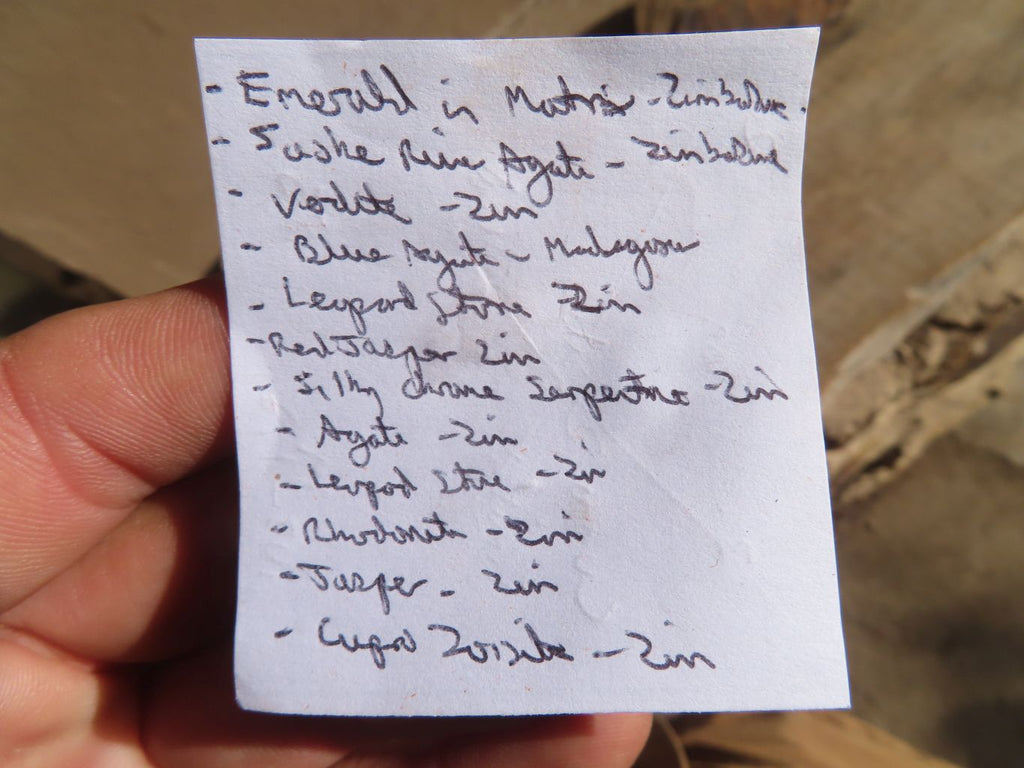 - Emerald in Matrix - Zimbabwe.
- Sashe River Agate - Zimbabwe
- Verdite - Zim
- Blue Agate - Madagascar
- Leopard Stone - Zim
- Red Jasper Zim
- Silky Chrome Serpentine - Zim
- Agate - Zim
- Leopard Stone - Zim
- Rhodonite - Zim
- Jasper - Zim
- Cupro Zoisite - Zim